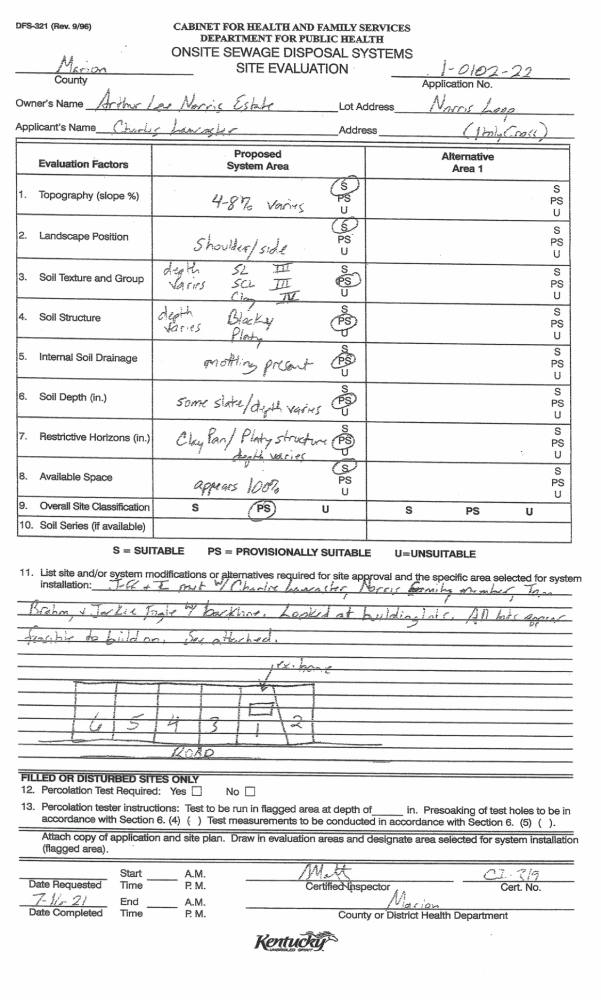 DFS-321 (Rev. 9/96)
CABINET FOR HEALTH AND FAMILY SERVICES
DEPARTMENT FOR PUBLIC HEALTH
ONSITE SEWAGE DISPOSAL SYSTEMS
Marion SITE EVALUATION 1-0102-22
County Application No.
Owner's Name Arthur Lee Norris Estate Lot Address Norris Loop
Applicant's Name Charlie Lancaster Address (Holy Cross)
Evaluation Factors Proposed System Area Alternative Area 1
1. Topography (slope %) 4-8% varies S PS U S PS U
2. Landscape Position Shoulder/side S PS U S PS U
3. Soil Texture and Group depth varies SL III SCL III Clay IV S PS U S PS U
4. Soil Structure depth varies Blocky Platy S PS U S PS U
5. Internal Soil Drainage mottling present S PS U S PS U
6. Soil Depth (in.) some slate/depth varies S PS U S PS U
7. Restrictive Horizons (in.) Clay Pan/Platy structure depth varies S PS U S PS U
8. Available Space appears 100% S PS U S PS U
9. Overall Site Classification S PS U S PS U
10. Soil Series (if available)
S = SUITABLE PS = PROVISIONALLY SUITABLE U=UNSUITABLE
11. List site and/or system modifications or alternatives required for site approval and the specific area selected for system
installation: Jeff + I met w/ Charlie Lancaster, Norris family member, Tom
Brahm, + Jackie w/ backhoe. Looked at building lots. All lots appear
feasible to build on. See attached.
ex. home
6 5 4 3 1 2
ROAD
FILLED OR DISTURBED SITES ONLY
12. Percolation Test Required: Yes No
13. Percolation tester instructions: Test to be run in flagged area at depth of in. Presoaking of test holes to be in
accordance with Section 6. (4) ( ) Test measurements to be conducted in accordance with Section 6. (5) ( ).
Attach copy of application and site plan. Draw in evaluation areas and designate area selected for system installation
(flagged area).
Start A.M. Matt CI-319
Date Requested Time P.M. Certified Inspector Cert. No.
21 End A.M. Marion
Date Completed Time P.M. County or District Health Department
Kentucky
UNBRIDLED SPIRIT